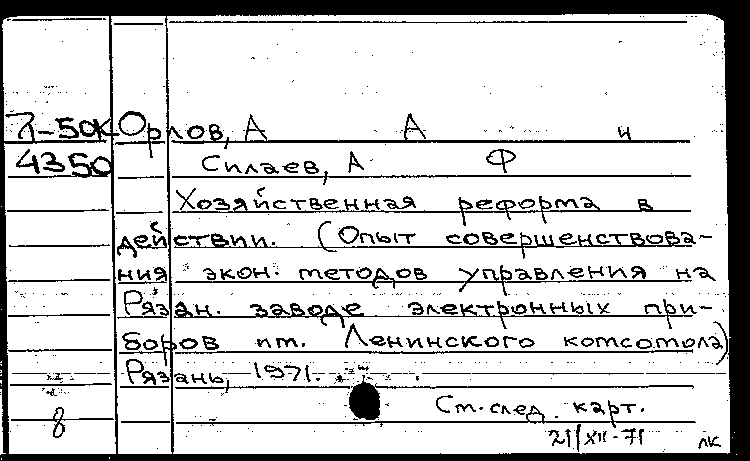 Л-50К Орлов, А А и
4350 Силаев, А Ф
Хозяйственная реформа в
действии. (Опыт совершенствова-
ния экон. методов управления на
Рязан. заводе электронных при-
боров им. Ленинского комсомола)
Рязань, 1971.
См. след. карт.
8
21/XII-71 лк